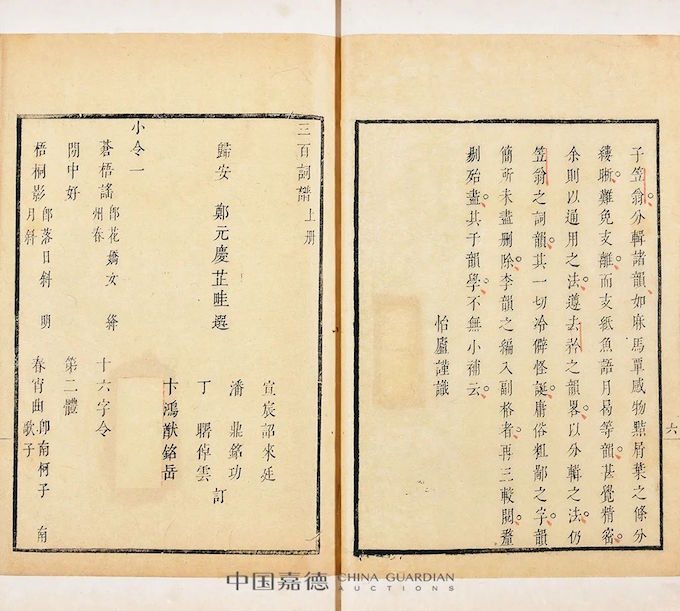 子笠翁分輯諸韻如麻馬覃感物點屑葉之條分
縷晰難免支離而支紙魚語月曷等韻甚覺精密
余則以通用之法遵去矜之韻畧以分輯之法仍
笠翁之詞韻其一切冷僻怪誕庸俗粗鄙之字韻
簡所未盡刪除李韻之編入副格者再三較閱釐
剔殆盡其于韻學不無小補云
怡廬謹識
六
三百詞譜 上册
歸安 鄭元慶芷畦選
宣宸詔來廷
潘鼎銘功
丁 倬雲 訂
卞鴻猷銘岳
小令一
蒼梧謠 卽花嬌女 絳州春 十六字令
閒中好 第二體
梧桐影 卽落日斜 明月斜 春宵曲 卽南柯子 南歌子
中国嘉德 CHINA GUARDIAN
AUCTIONS